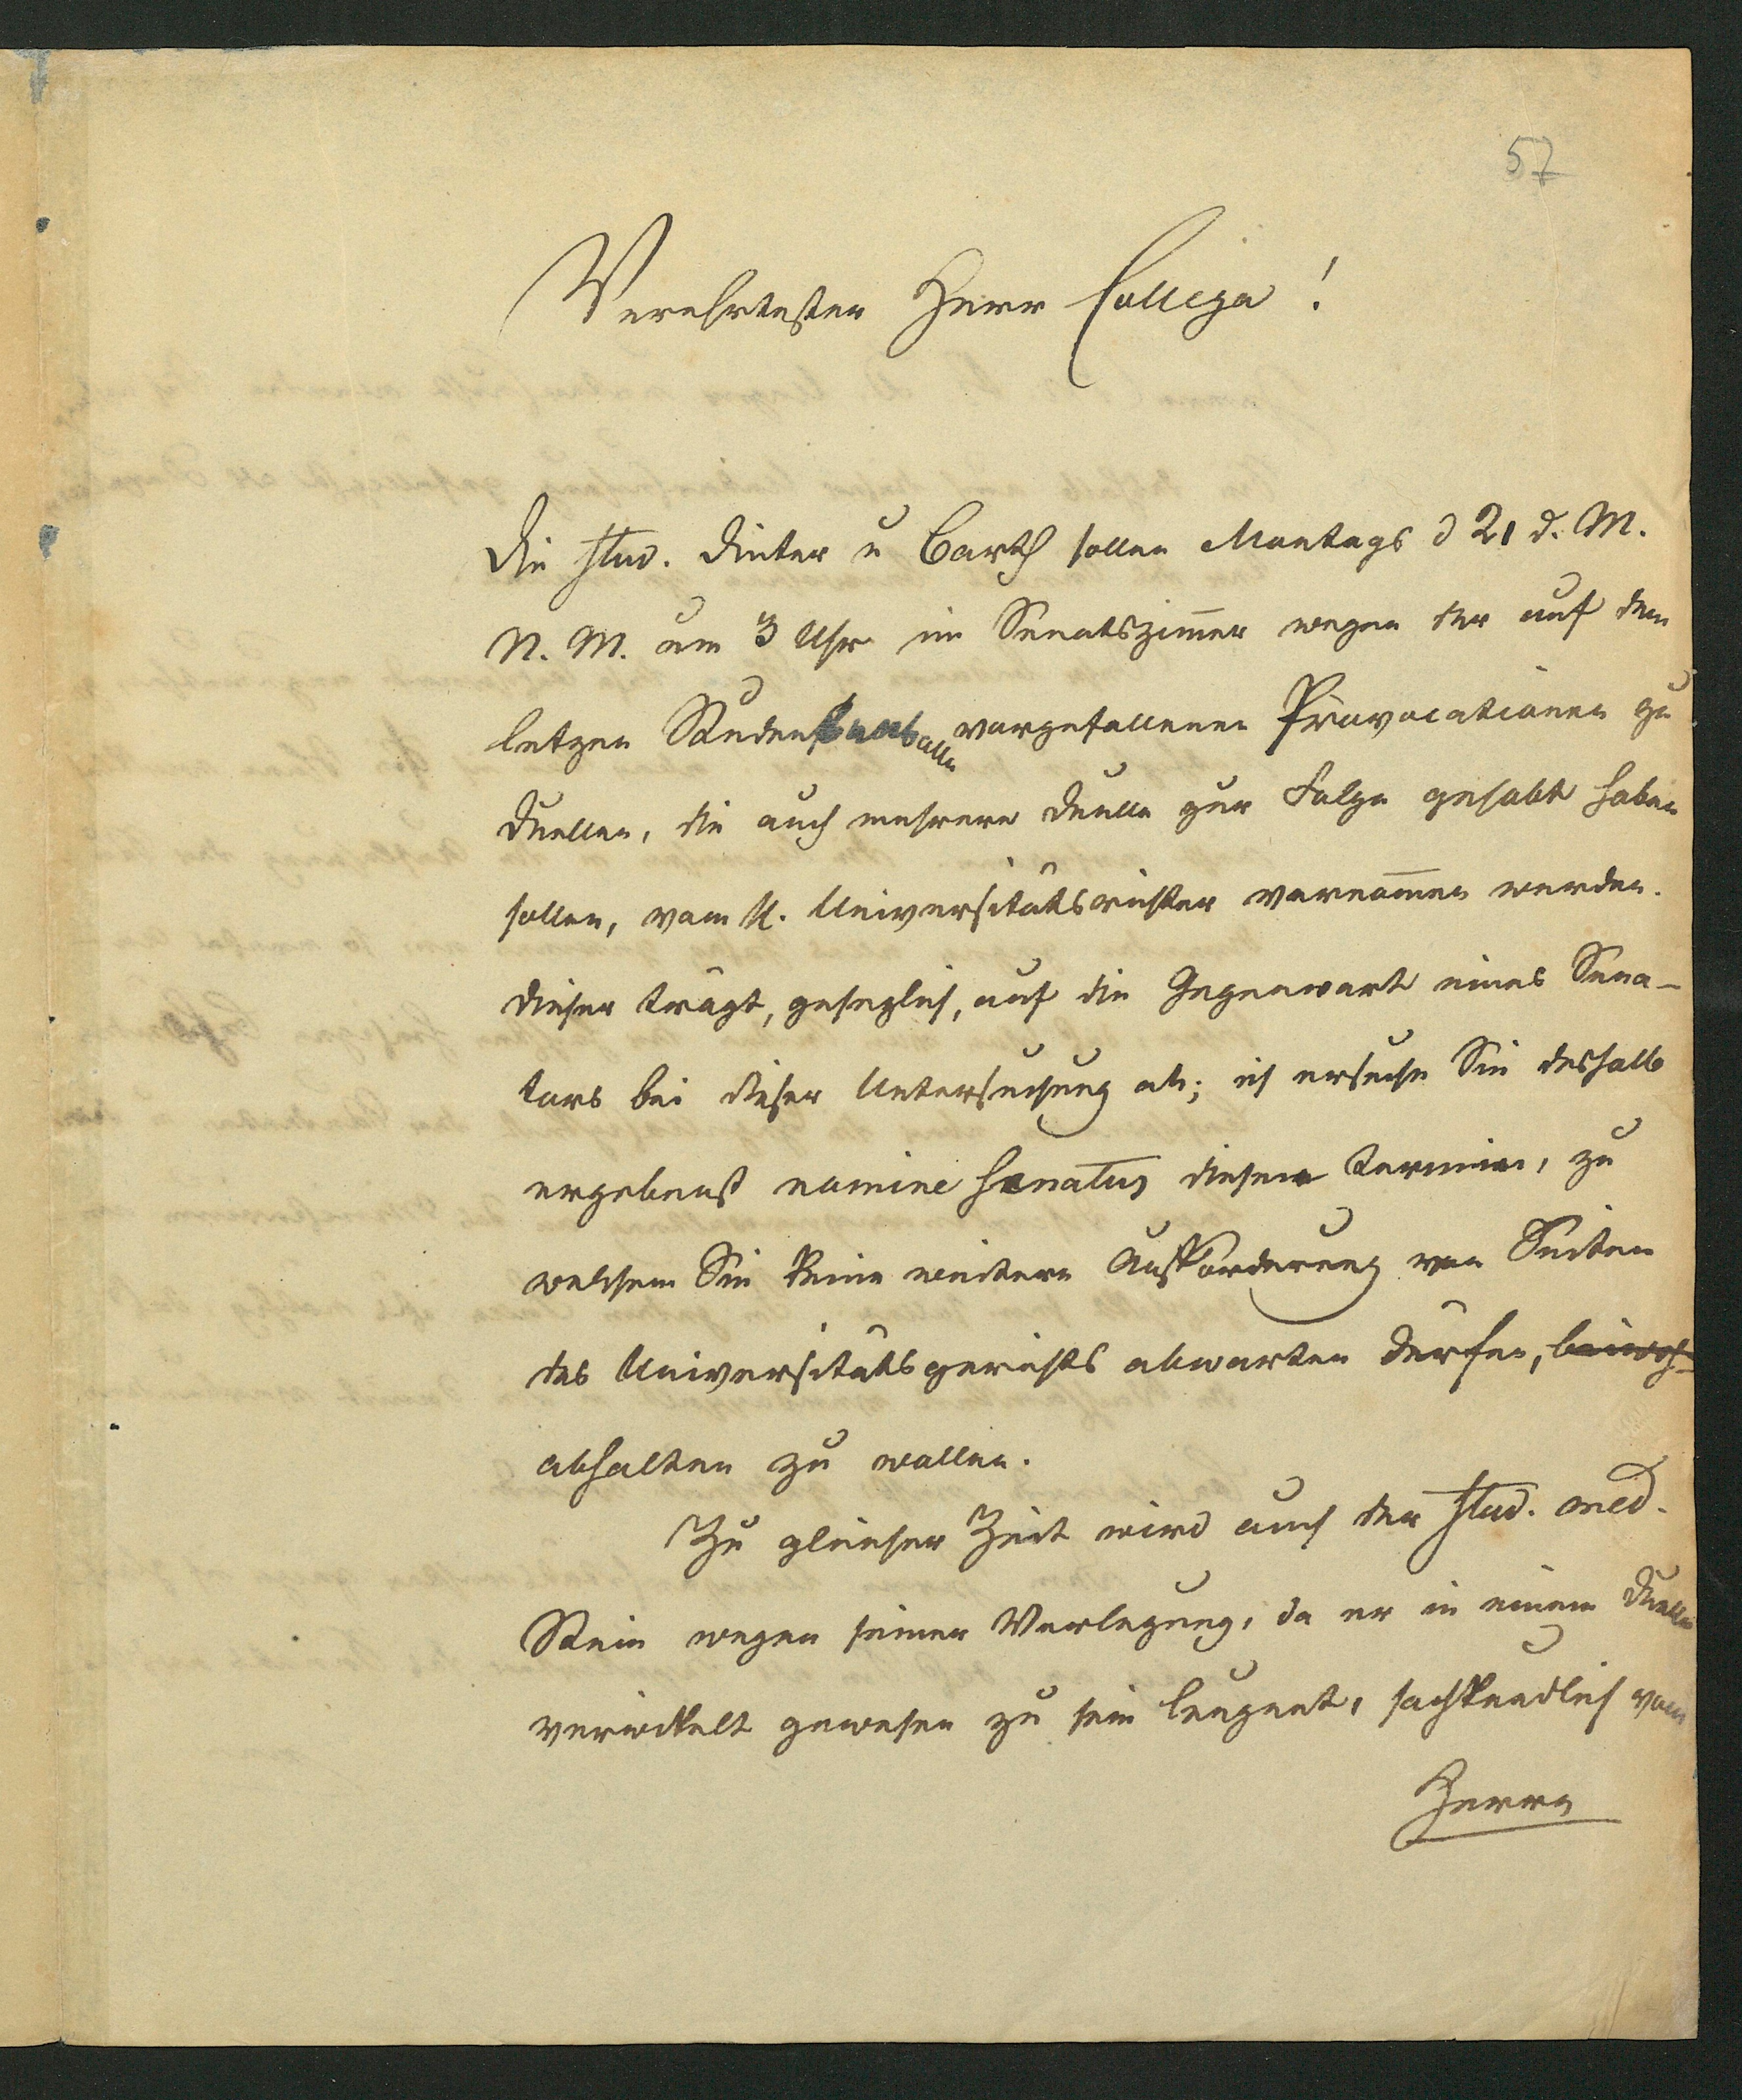 57
Verehrtester Herr College!
Die stud. Dinter u Barth sollen Montags d 21 d. M.
N. M. um 3 Uhr im Senatszim̅er wegen der auf dem
letzen Studentenballe vorgefallenen Provocationen zu
Duellen, die auch mehrere Duelle zur Folge gehabt haben
sollen, vom K. Universitätsrichter vernom̅en werden.
Dieser trägt, gesezlich, auf die Gegenwart eines Sena-
tors bei dieser Untersuchung an; ich ersuche Sie deshalb
ergebenst nomine Senatus diesen Termin, zu
welchem Sie keine weitere Aufforderung von Seiten
des Universitätsgerichts abwarten dürfen, beiwoh-
abhalten zu wollen.
Zu gleicher Zeit wird auch der stud. med.
Stein wegen seiner Verlezung, da er in einem Duelle
verwickelt gewesen zu sein leugnet, sachkundlich vom
Herrn